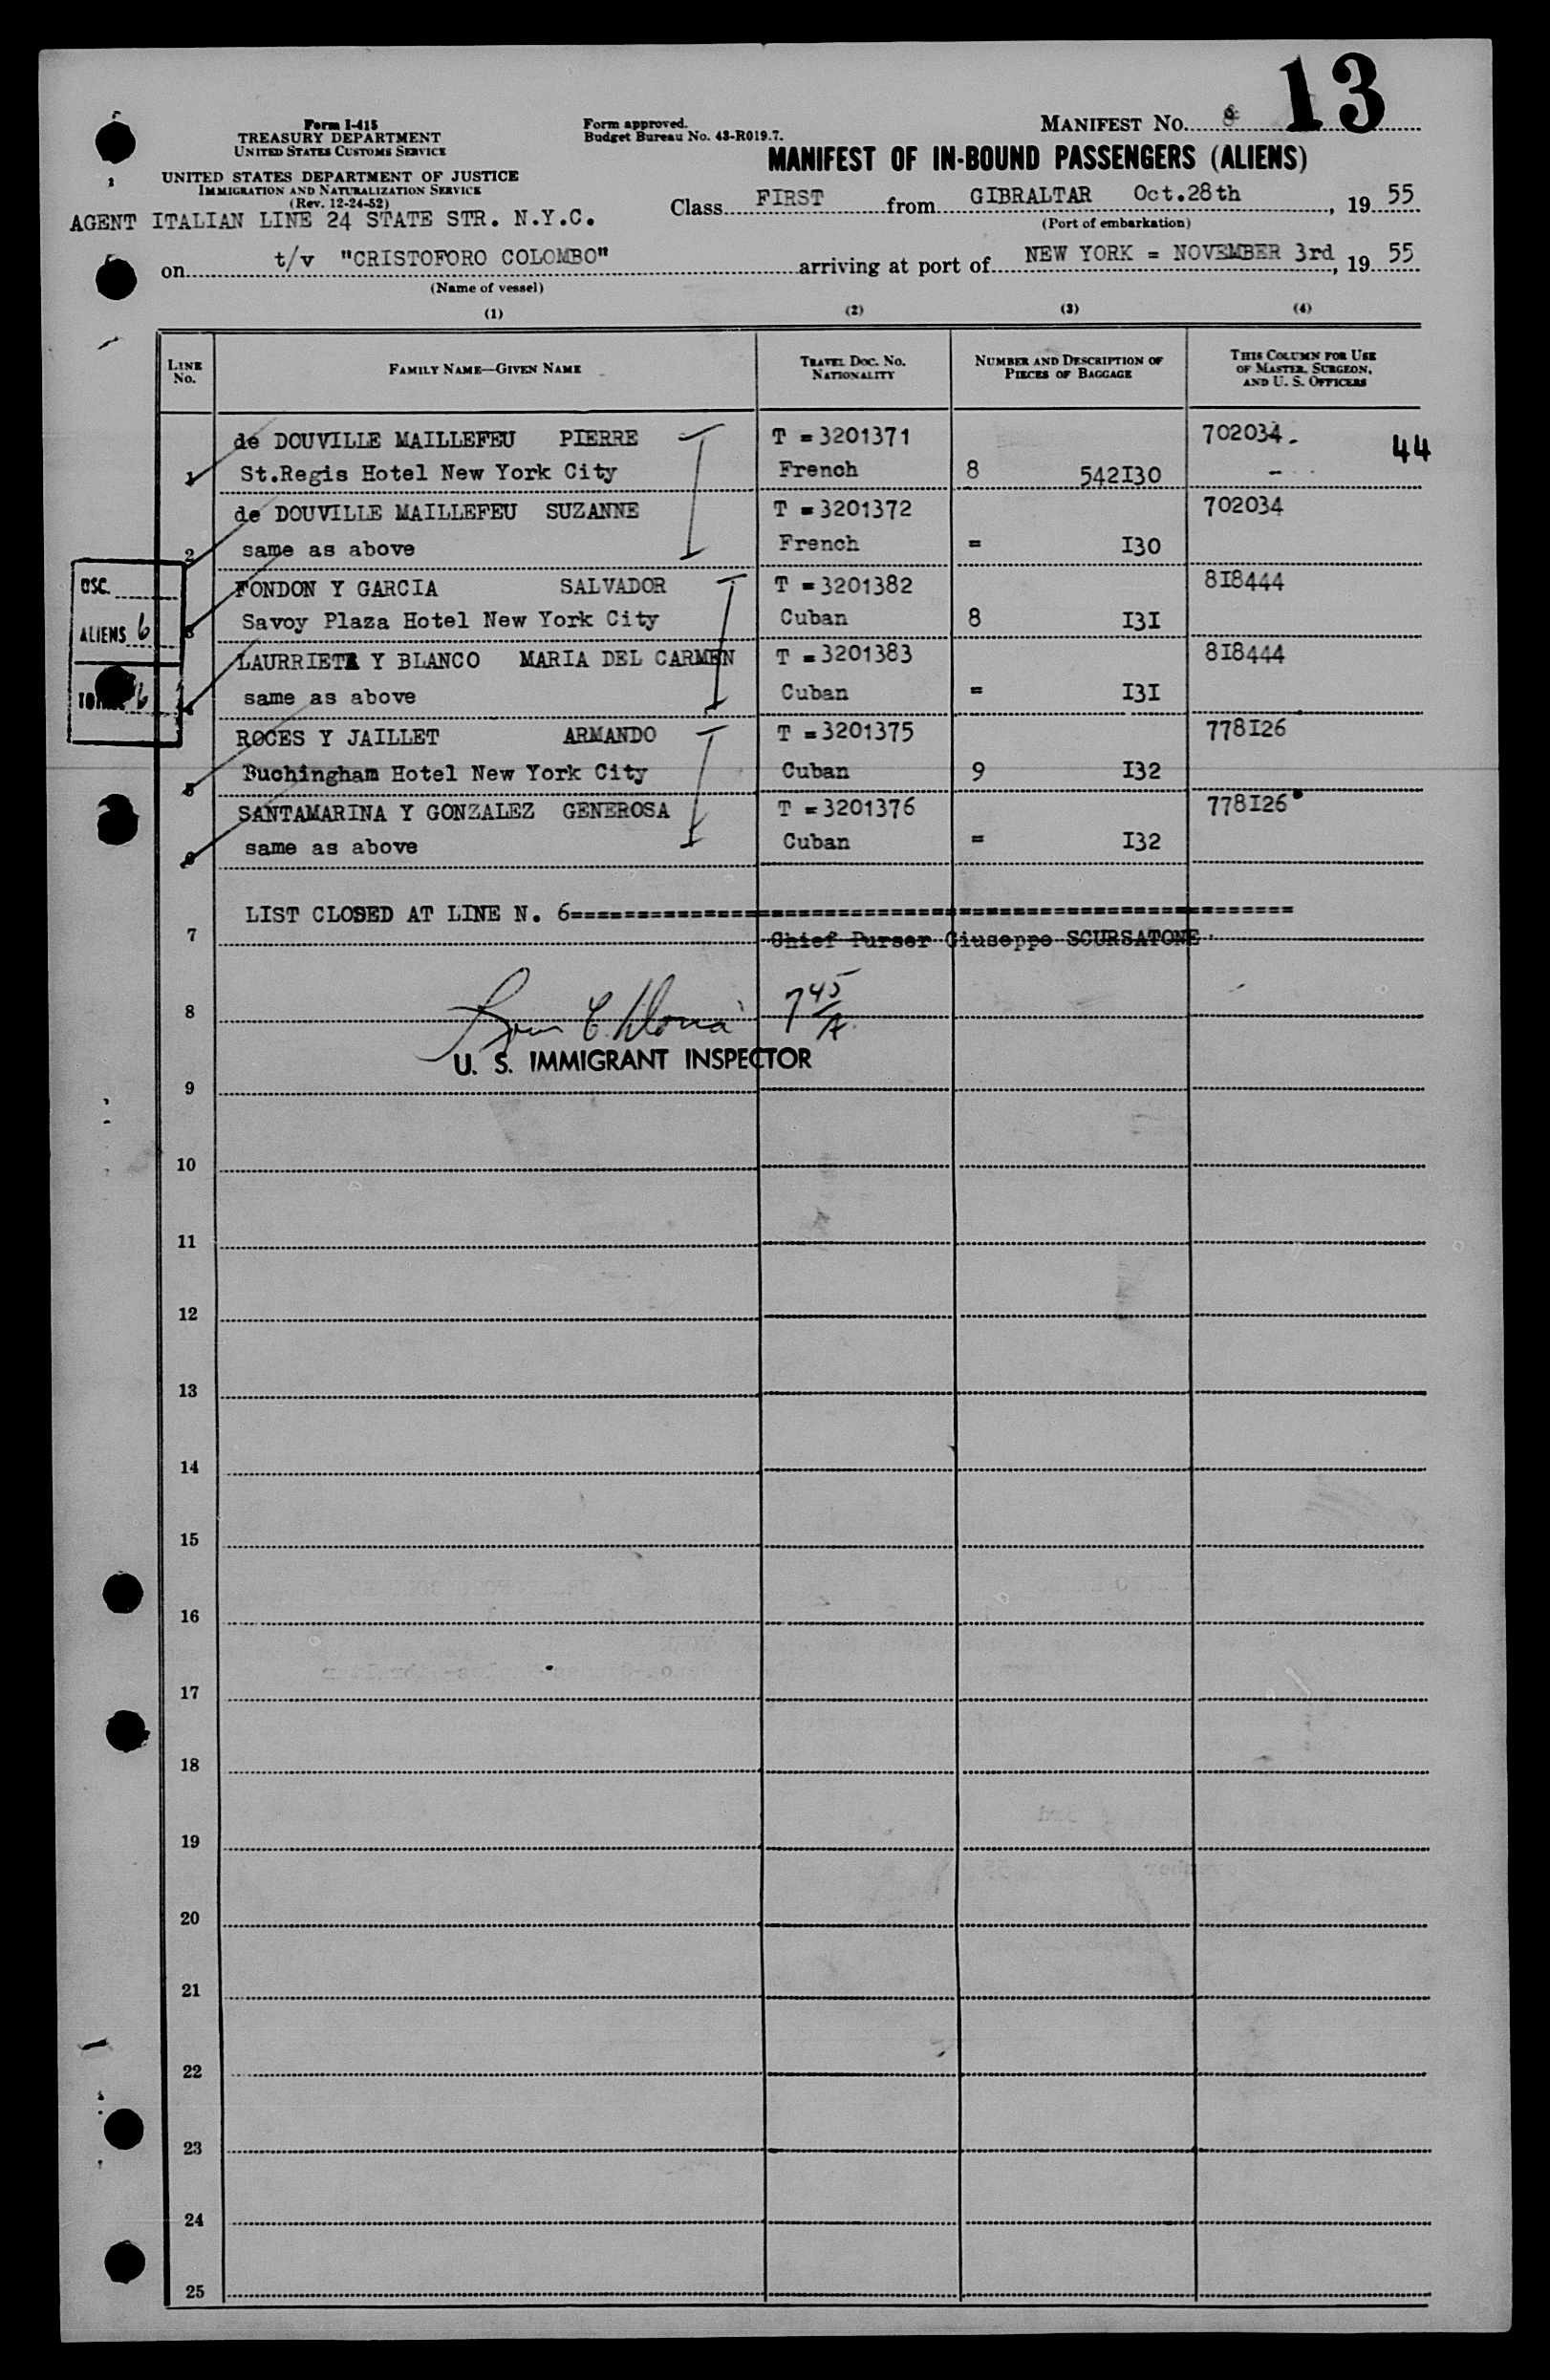 13
Form I-415
TREASURY DEPARTMENT
UNITED STATES CUSTOMS SERVICE
Form approved.
Budget Bureau No. 43-R019.7.
MANIFEST NO.
MANIFEST OF IN-BOUND PASSENGERS (ALIENS)
UNITED STATES DEPARTMENT OF JUSTICE
IMMIGRATION AND NATURALIZATION SERVICE
(Rev. 12-24-52)
AGENT ITALIAN LINE 24 STATE STR. N.Y.C.
Class FIRST from GIBRALTAR Oct.28th, 19 55
(Port of embarkation)
on t/v "CRISTOFORO COLOMBO" arriving at port of NEW YORK = NOVEMBER 3rd, 19 55
(Name of vessel)
(1) (2) (3) (4)
LINE NO. FAMILY NAME—GIVEN NAME TRAVEL DOC. NO. NATIONALITY NUMBER AND DESCRIPTION OF PIECES OF BAGGAGE THIS COLUMN FOR USE OF MASTER, SURGEON, AND U. S. OFFICERS
de DOUVILLE MAILLEFEU PIERRE T = 3201371 702034 44
1 St.Regis Hotel New York City French 8 542I30
de DOUVILLE MAILLEFEU SUZANNE T = 3201372 702034
2 same as above French = I30
FONDON Y GARCIA SALVADOR T = 3201382 8I8444
3 Savoy Plaza Hotel New York City Cuban 8 I3I
LAURRIETA Y BLANCO MARIA DEL CARMEN T = 3201383 8I8444
4 same as above Cuban = I3I
ROCES Y JAILLET ARMANDO T = 3201375 778I26
5 Buchingham Hotel New York City Cuban 9 I32
SANTAMARINA Y GONZALEZ GENEROSA T = 3201376 778I26
6 same as above Cuban = I32
USC.
ALIENS 6
TOTAL 6
LIST CLOSED AT LINE N. 6======================================================
7 Chief Purser Giuseppe SCURSATONE
8 7 45/A.
U. S. IMMIGRANT INSPECTOR
9
10
11
12
13
14
15
16
17
18
19
20
21
22
23
24
25